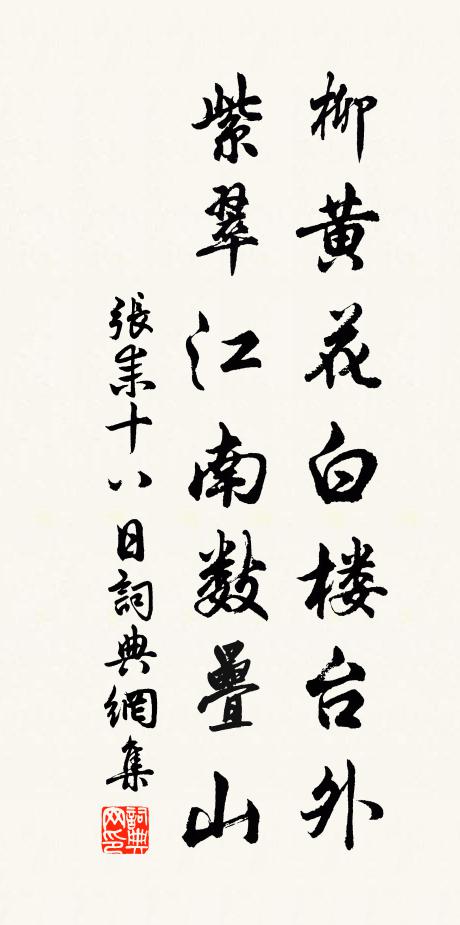 柳黄花白楼台外
紫翠江南数叠山
張耒十八日詞典網集
詞典网印